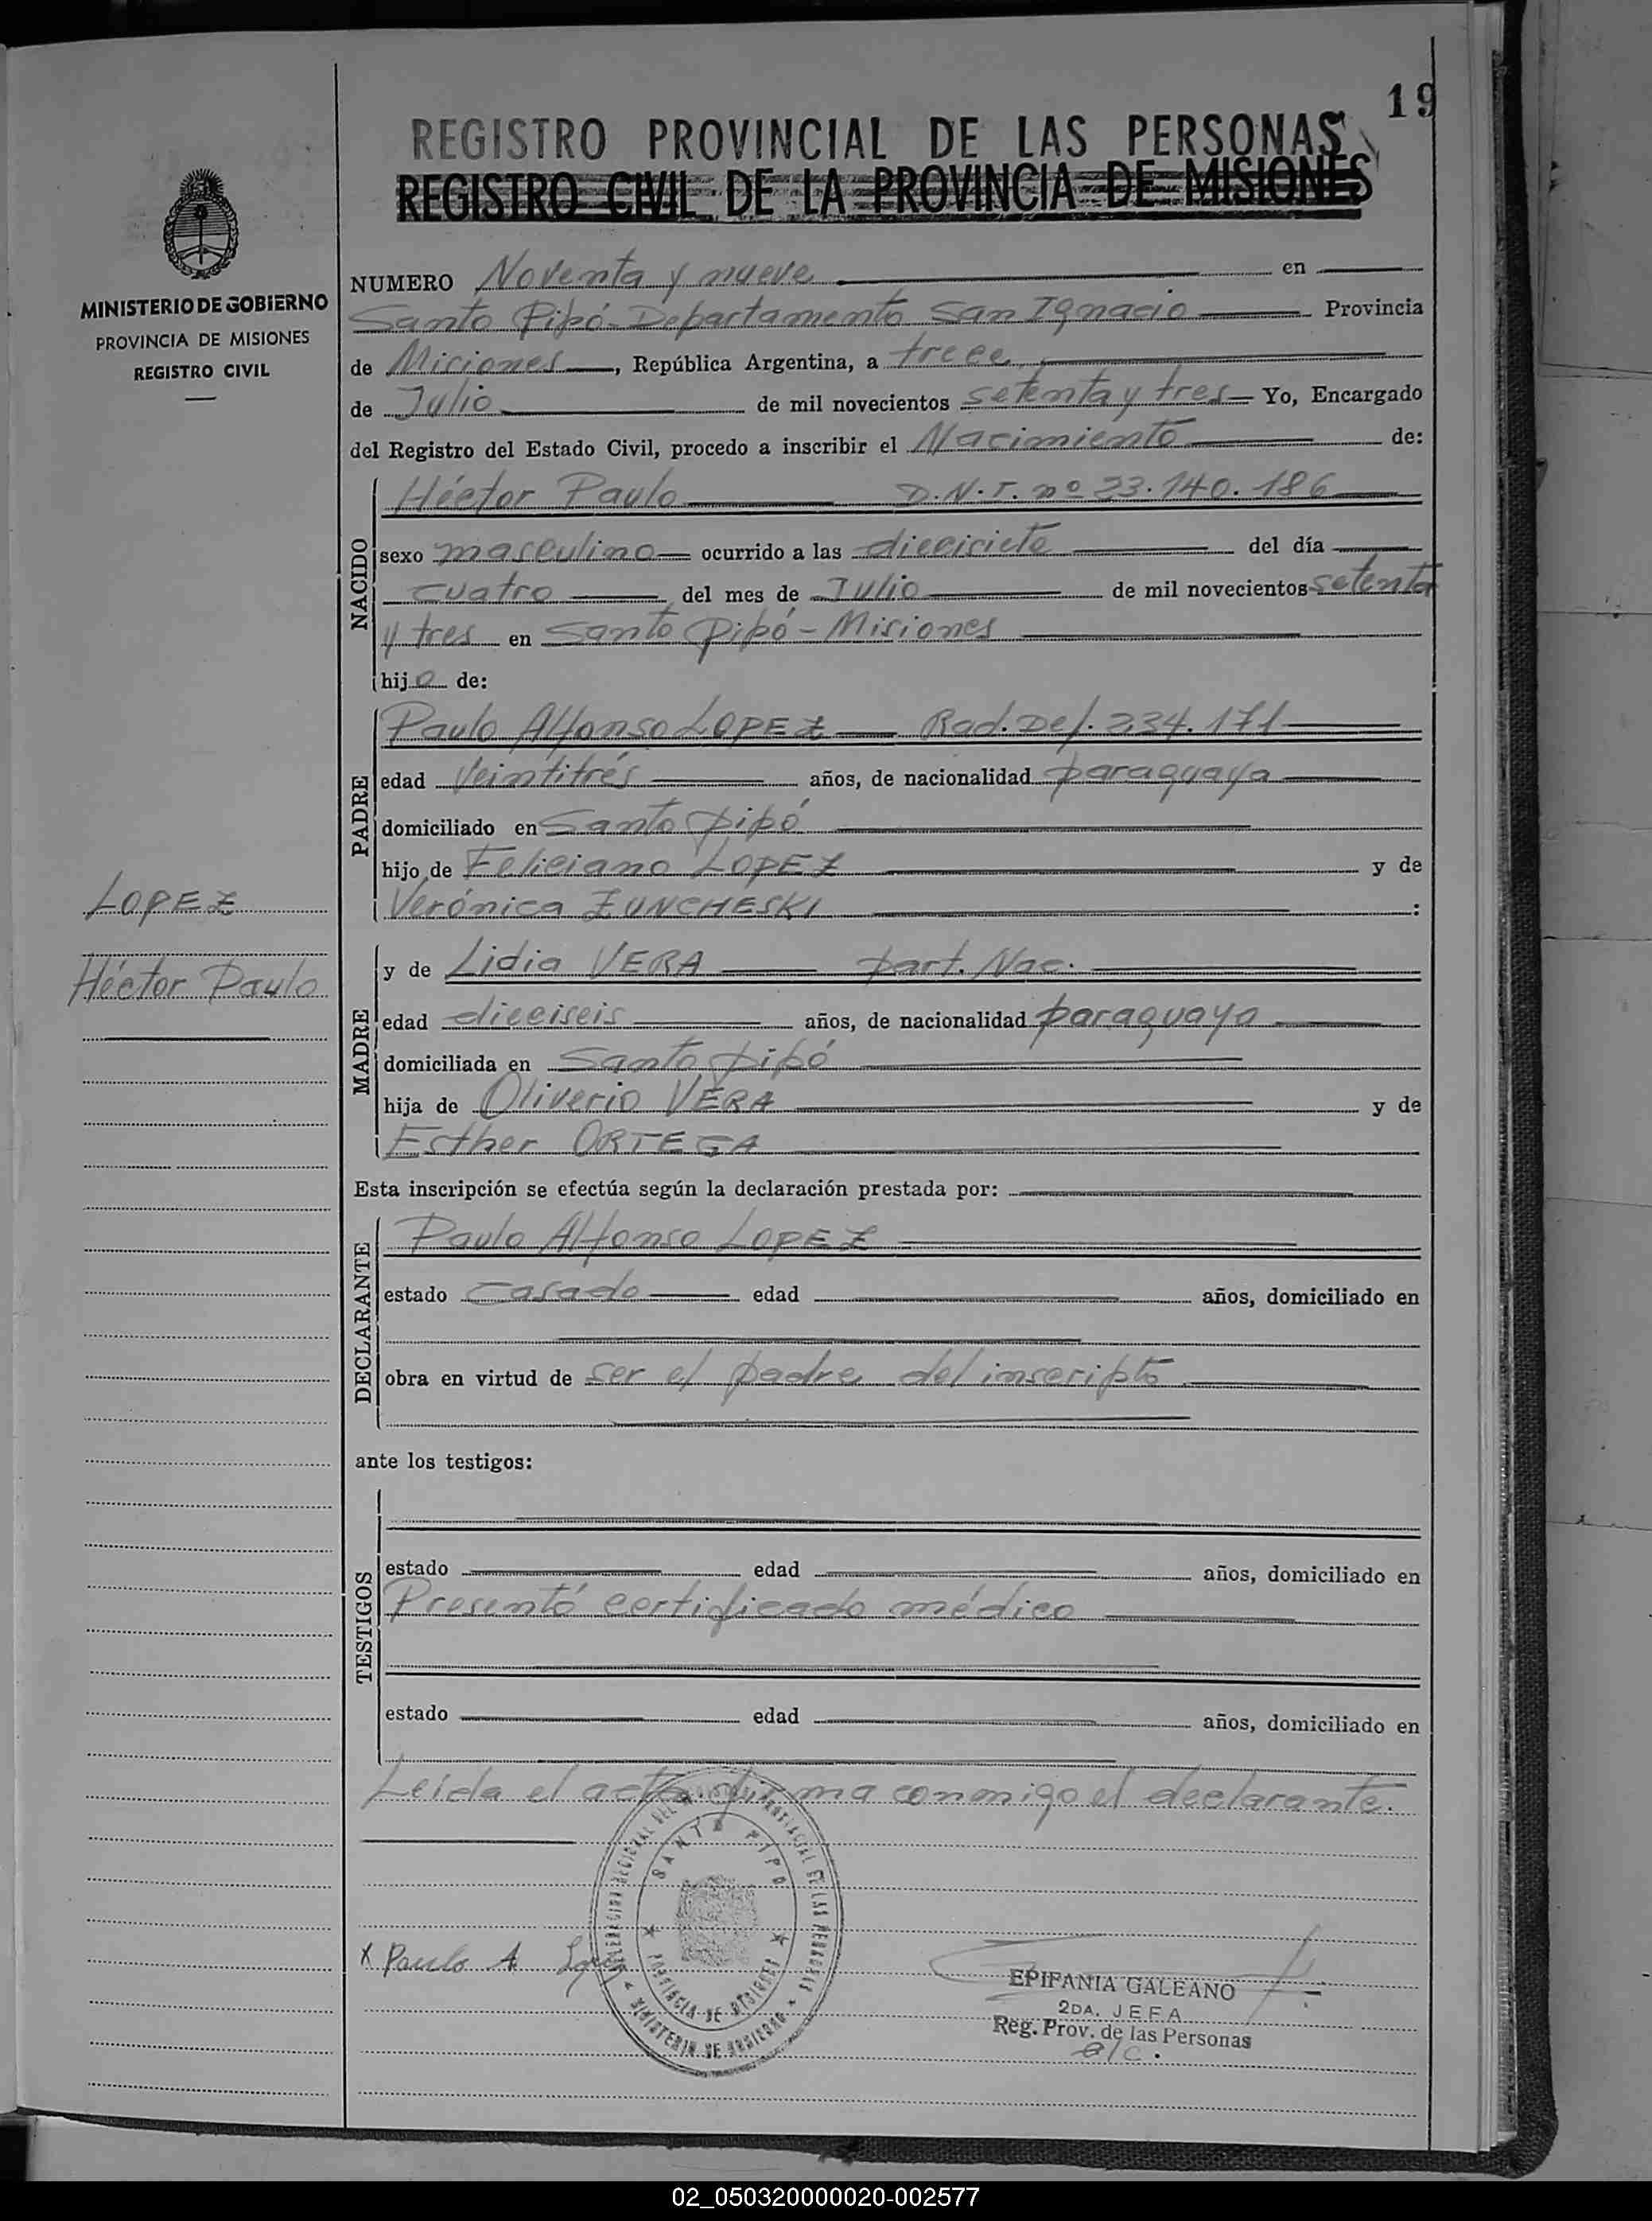 19
REGISTRO PROVINCIAL DE LAS PERSONAS
REGISTRO CIVIL DE LA PROVINCIA DE MISIONES
MINISTERIO DE GOBIERNO
PROVINCIA DE MISIONES
REGISTRO CIVIL
NUMERO Noventa y nueve en
Santo Pipó-Departamento San Ignacio Provincia
de Misiones, República Argentina, a trece
de Julio de mil novecientos setenta y tres Yo, Encargado
del Registro del Estado Civil, procedo a inscribir el Nacimiento de:
NACIDO
Héctor Paulo D.N.I. nº 23.140.186
sexo masculino ocurrido a las diecisiete del día
cuatro del mes de Julio de mil novecientos setenta
y tres en Santo Pipó-Misiones
hijo de:
PADRE
Paulo Alfonso LOPEZ Rad. Def. 234.171
edad Veintitrés años, de nacionalidad paraguaya
domiciliado en Santo pipó
hijo de Feliciano LOPEZ y de
Verónica ZUNCHESKI :
LOPEZ
Héctor Paulo
MADRE
y de Lidia VERA part. Nac.
edad dieciseis años, de nacionalidad paraguaya
domiciliada en Santo pipó
hija de Oliverio VERA y de
Esther ORTEGA
Esta inscripción se efectúa según la declaración prestada por:
DECLARANTE
Paulo Alfonso LOPEZ
estado casado edad años, domiciliado en
obra en virtud de ser el padre del inscripto
ante los testigos:
TESTIGOS
estado edad años, domiciliado en
Presentó certificado médico
estado edad años, domiciliado en
Leída el acta firma conmigo el declarante.
SANTO PIPO
PROVINCIA DE MISIONES
MINISTERIO DE GOBIERNO
x Paulo A Lopez
EPIFANIA GALEANO
2DA. JEFA
Reg. Prov. de las Personas
a/c.
02_050320000020-002577